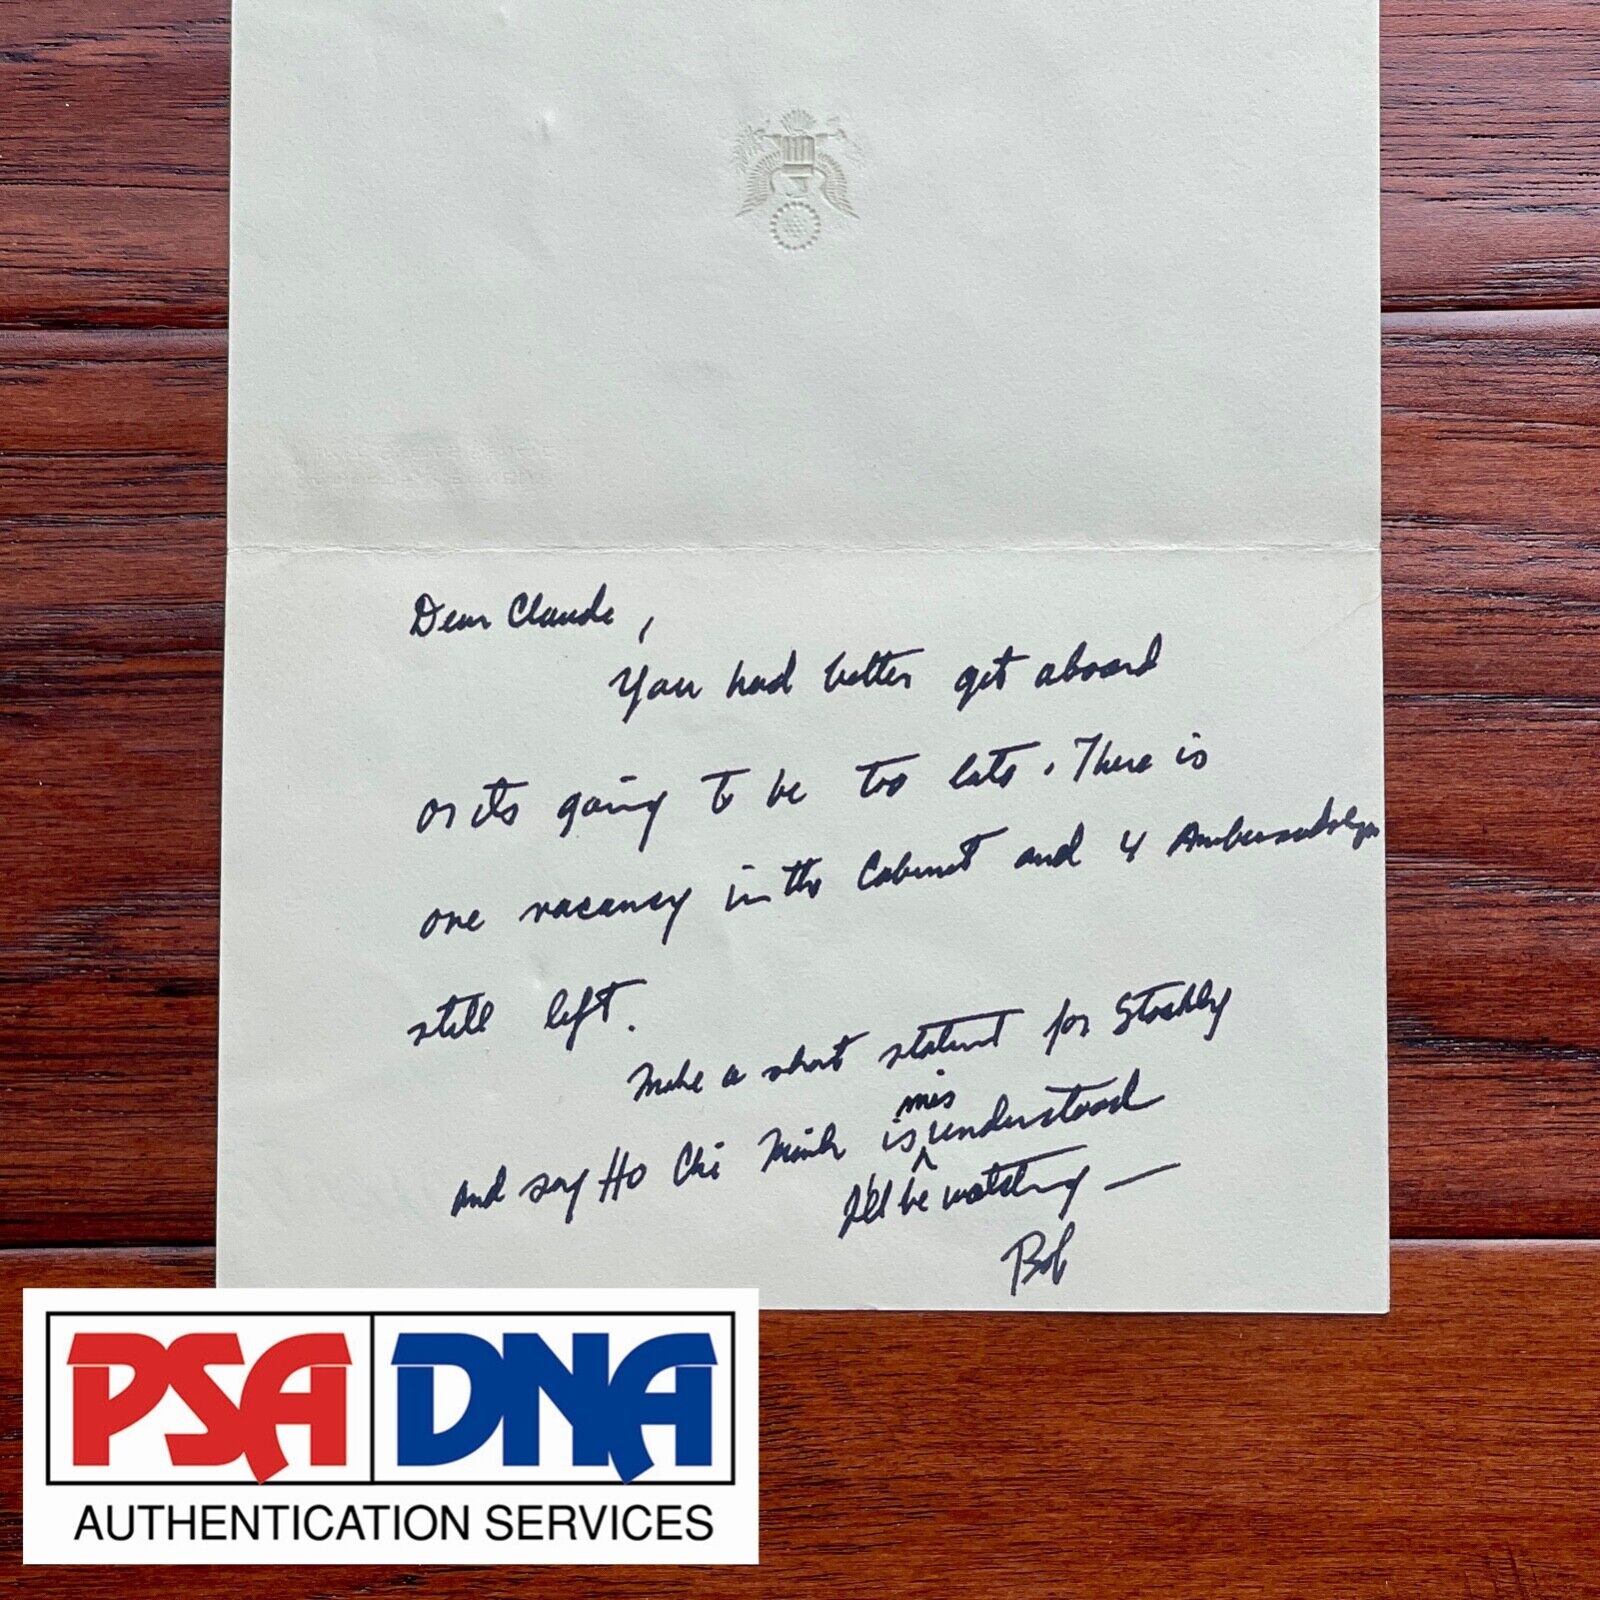 Dear Claude,
You had better get aboard
or its going to be too late. There is
one vacancy in the Cabinet and 4 Ambassadorships
still left.
Make a short statement for Stokely
and say Ho Chi Minh is ^mis understood
I'll be watching —
Bob
PSA DNA
AUTHENTICATION SERVICES